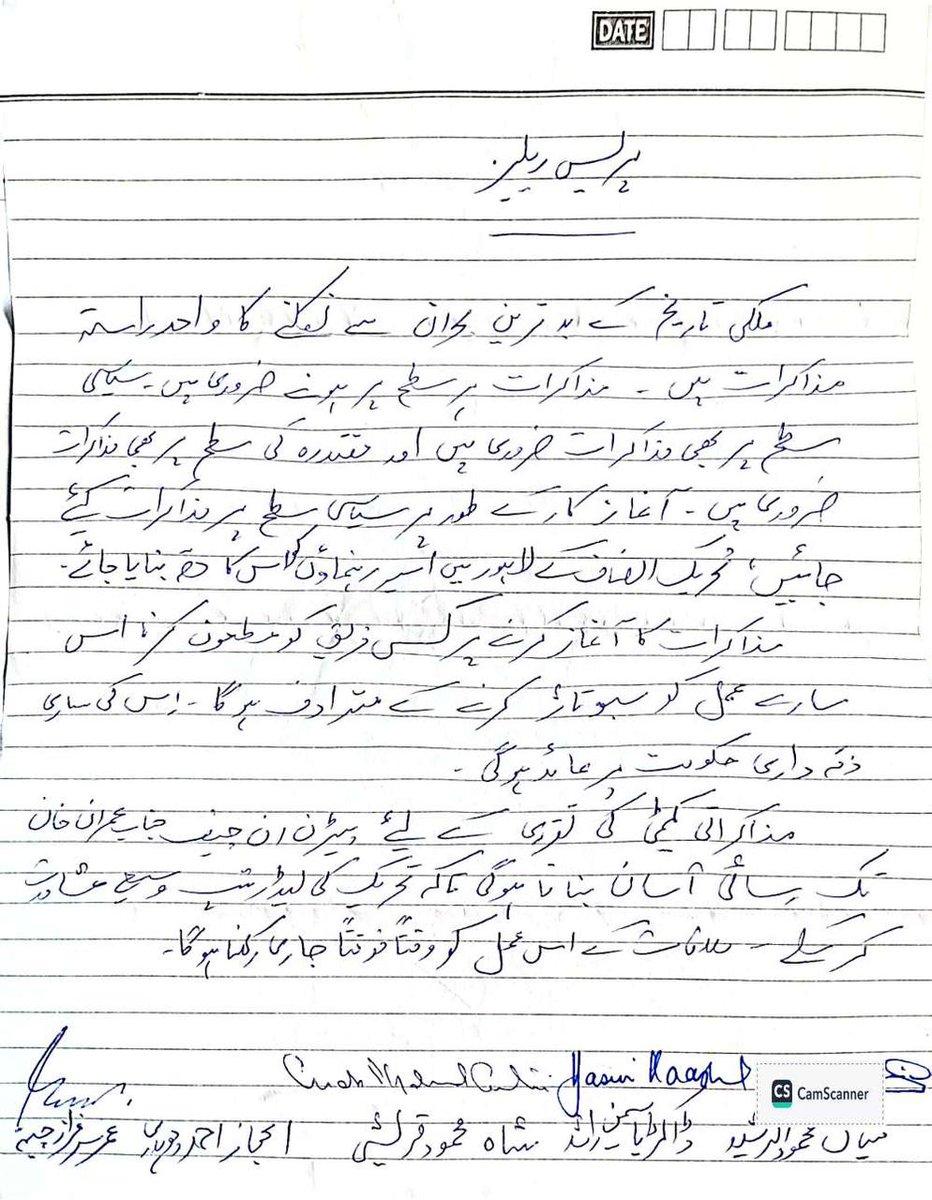 DATE
پریس ریلیز
ملکی تاریخ کے بدترین بحران سے نکلنے کا واحد راستہ
مذاکرات ہیں ۔ مذاکرات ہر سطح پر ہونے ضروری ہیں ۔ سیاسی
سطح پر بھی مذاکرات ضروری ہیں اور مقتدرہ کی سطح پر بھی مذاکرات
ضروری ہیں ۔ آغاز کار کے طور پر سیاسی سطح پر مذاکرات کئے
جائیں، تحریک انصاف کے لاہور میں اسیر رہنماؤں کو اس کا حصہ بنایا جائے ۔
مذاکرات کا آغاز کرنے پر کسی فریق کو مطعون کرنا اس
سارے عمل کو سبوتاژ کرنے کے مترادف ہوگا ۔ اِس کی ساری
ذمہ داری حکومت پر عائد ہوگی ۔
مذاکراتی کمیٹی کی تقرری کے لیئے پیٹرن ان چیف جناب عمران خان
تک رسائی آسان بنانا ہوگی تاکہ تحریک کی لیڈرشپ وسیع مشاورت
کر سکے ۔ ملاقات کے اس عمل کو وقتاً فوقتاً جاری رکھنا ہوگا ۔
Yasmin Raashid
CS CamScanner
میاں محمود الرشید ڈاکٹر یاسمین راشد شاہ محمود قریشی اعجاز احمد چوہدری عمر سرفراز چیمہ